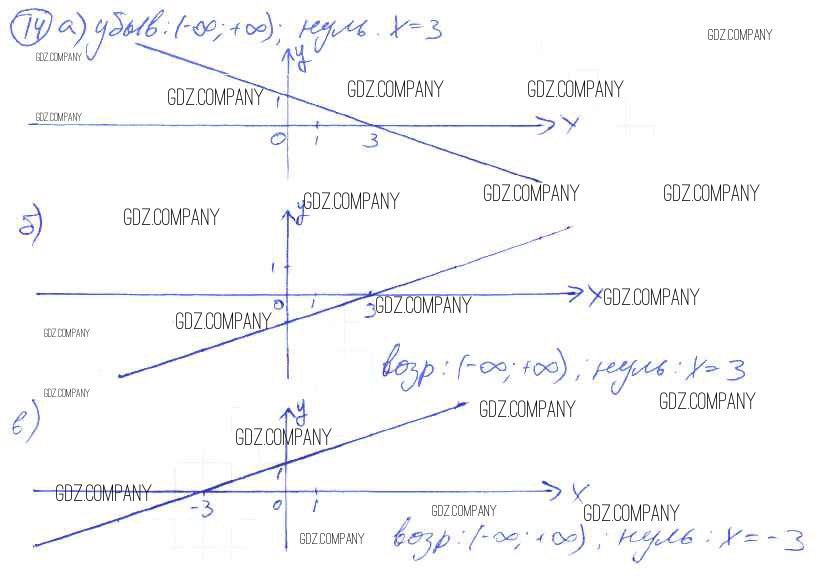 14 а) убыв: (-∞; +∞); нуль: x=3
GDZ.COMPANY
GDZ.COMPANY
y
GDZ.COMPANY GDZ.COMPANY GDZ.COMPANY
1
GDZ.COMPANY
0 1 3 x
GDZ.COMPANY GDZ.COMPANY GDZ.COMPANY GDZ.COMPANY
б) y
1
0 1 3 x
GDZ.COMPANY GDZ.COMPANY
GDZ.COMPANY
GDZ.COMPANY
возр: (-∞; +∞); нуль: x=3
GDZ.COMPANY
GDZ.COMPANY GDZ.COMPANY
в) y
GDZ.COMPANY
1
GDZ.COMPANY
-3 0 1 x
GDZ.COMPANY GDZ.COMPANY
GDZ.COMPANY
возр: (-∞; +∞); нуль: x=-3